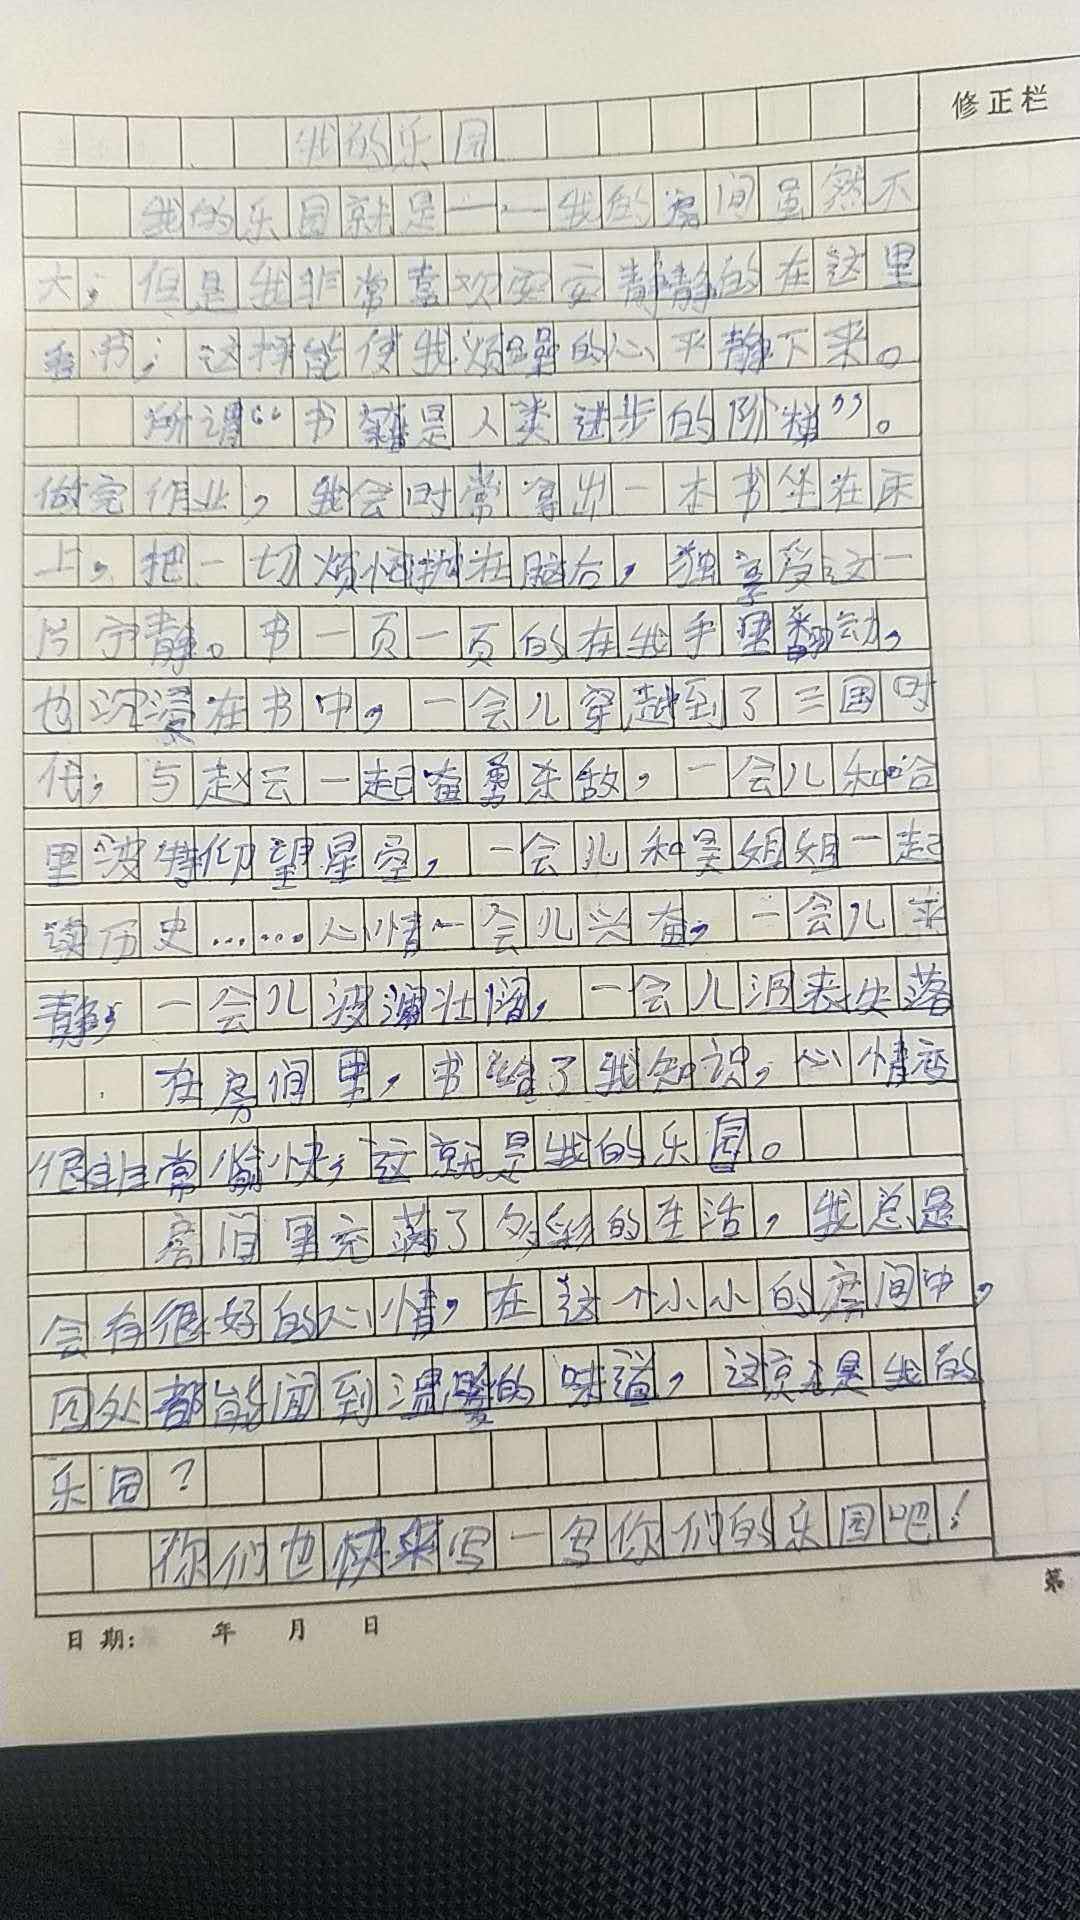 修正栏
我的乐园
我的乐园就是——我的房间虽然不
大，但是我非常喜欢安安静静的在这里
看书，这样能使我烦躁的心平静下来。
所谓“书籍是人类进步的阶梯”。
做完作业，我会时常拿出一本书坐在床
上，把一切烦恼抛在脑后，独享受这一
片宁静。书一页一页的在我手里翻动，
也沉浸在书中，一会儿穿越到了三国时
代，与赵云一起奋勇杀敌，一会儿和哈
里波特仰望星空，一会儿和吴姐姐一起
读历史……心情一会儿兴奋，一会儿平
静，一会儿波澜壮阔，一会儿沮丧失落
在房间里，书给了我知识，心情变
很非常愉快，这就是我的乐园。
房间里充满了多彩的生活，我总是
会有很好的心情，在这个小小的房间中，
四处都能闻到温馨的味道，这就是我的
乐园？
你们也快来写一写你们的乐园吧！
日期： 年 月 日
第